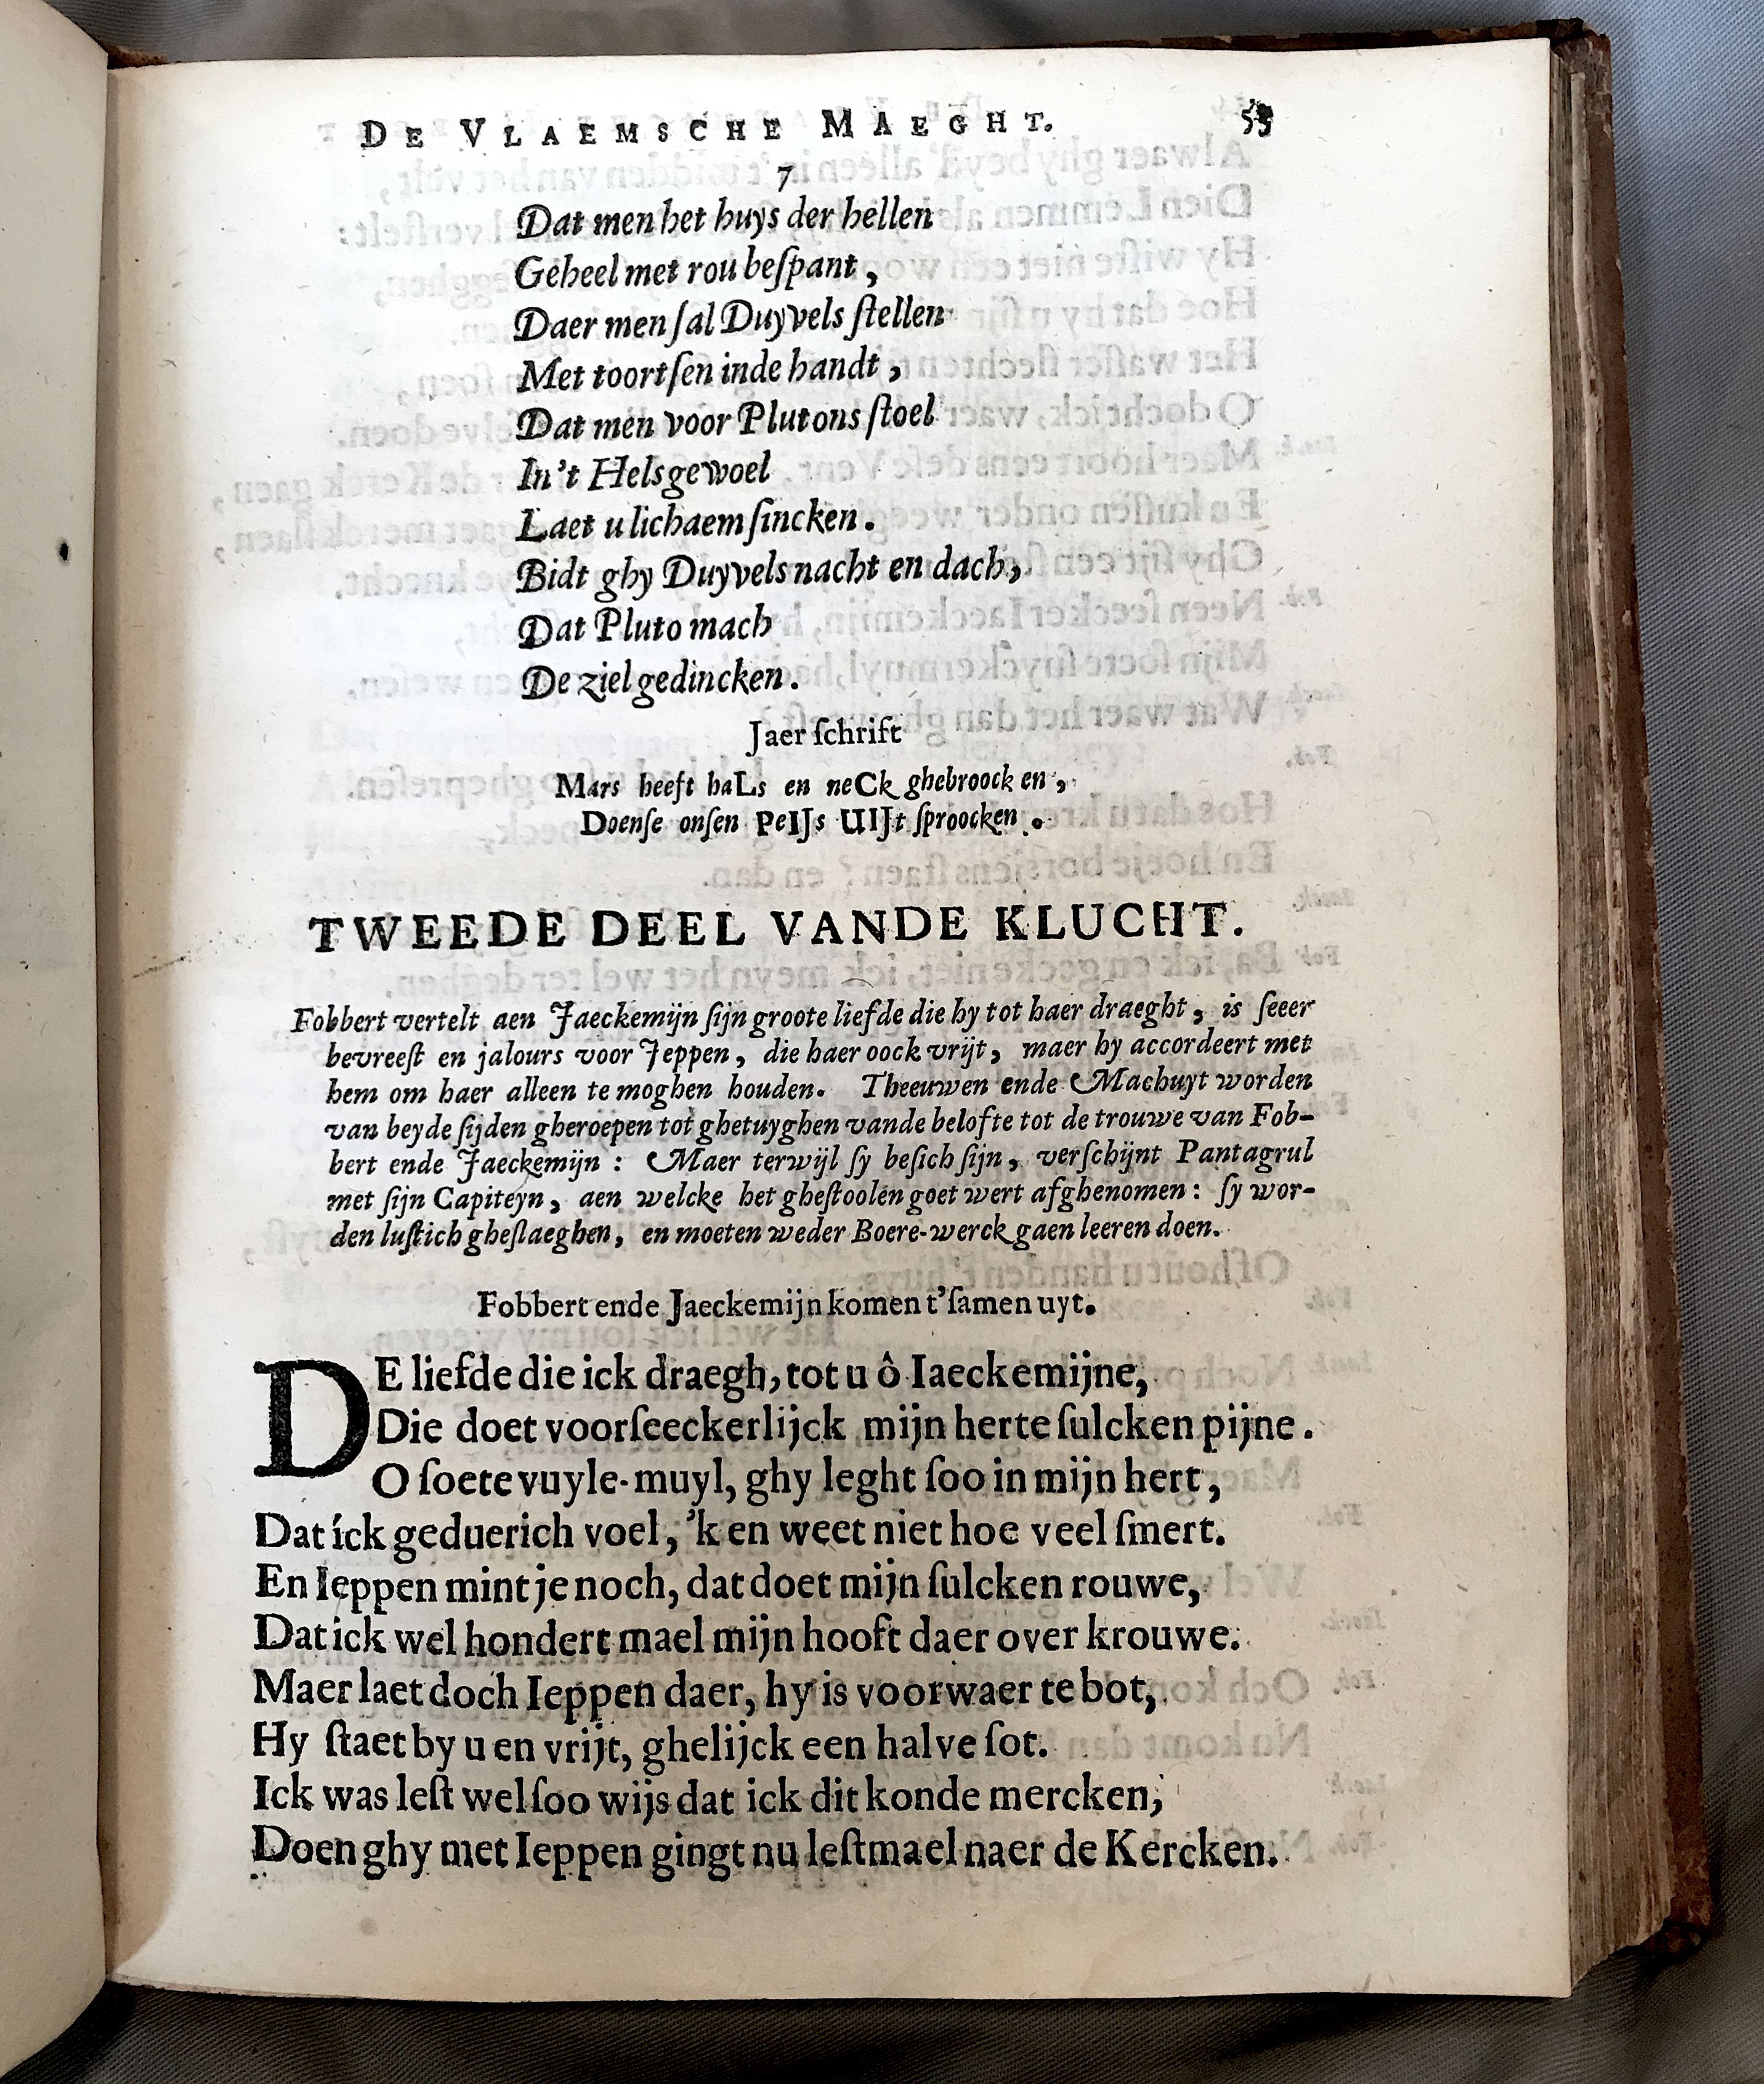 DE VLAEMSCHE MAEGHT. 55
7
Dat men het huys der hellen
Geheel met rou beſpant,
Daer men ſal Duyvels ſtellen
Met toortſen inde handt,
Dat men voor Plutons ſtoel
In't Hels gewoel
Laet u lichaem ſincken.
Bidt ghy Duyvels nacht en dach,
Dat Pluto mach
De ziel gedincken.
Jaer ſchrift
Mars heeft haLs en neCk ghebroocken,
Doenſe onſen PeIJs UIJt ſproocken.
TWEEDE DEEL VANDE KLUCHT.
Fobbert vertelt aen Jaeckemijn ſijn groote liefde die hy tot haer draeght, is ſeeer
bevreeſt en jalours voor Jeppen, die haer oock vrijt, maer hy accordeert met
hem om haer alleen te moghen houden. Theeuwen ende Machuyt worden
van beyde ſijden gheroepen tot ghetuyghen vande belofte tot de trouwe van Fob-
bert ende Jaeckemijn: Maer terwijl ſy beſich ſijn, verſchijnt Pantagrul
met ſijn Capiteyn, aen welcke het gheſtoolen goet wert afghenomen: ſy wor-
den luſtich gheſlaeghen, en moeten weder Boere-werck gaen leeren doen.
Fobbert ende Jaeckemijn komen t'ſamen uyt.
DE liefde die ick draegh, tot u ô Iaeckemijne,
Die doet voorſeeckerlijck mijn herte ſulcken pijne.
O ſoete vuyle-muyl, ghy leght ſoo in mijn hert,
Dat ick geduerich voel, 'k en weet niet hoe veel ſmert.
En Ieppen mint je noch, dat doet mijn ſulcken rouwe,
Dat ick wel hondert mael mijn hooft daer over krouwe.
Maer laet doch Ieppen daer, hy is voorwaer te bot,
Hy ſtaet by u en vrijt, ghelijck een halve ſot.
Ick was leſt wel ſoo wijs dat ick dit konde mercken,
Doen ghy met Ieppen gingt nu leſtmael naer de Kercken.